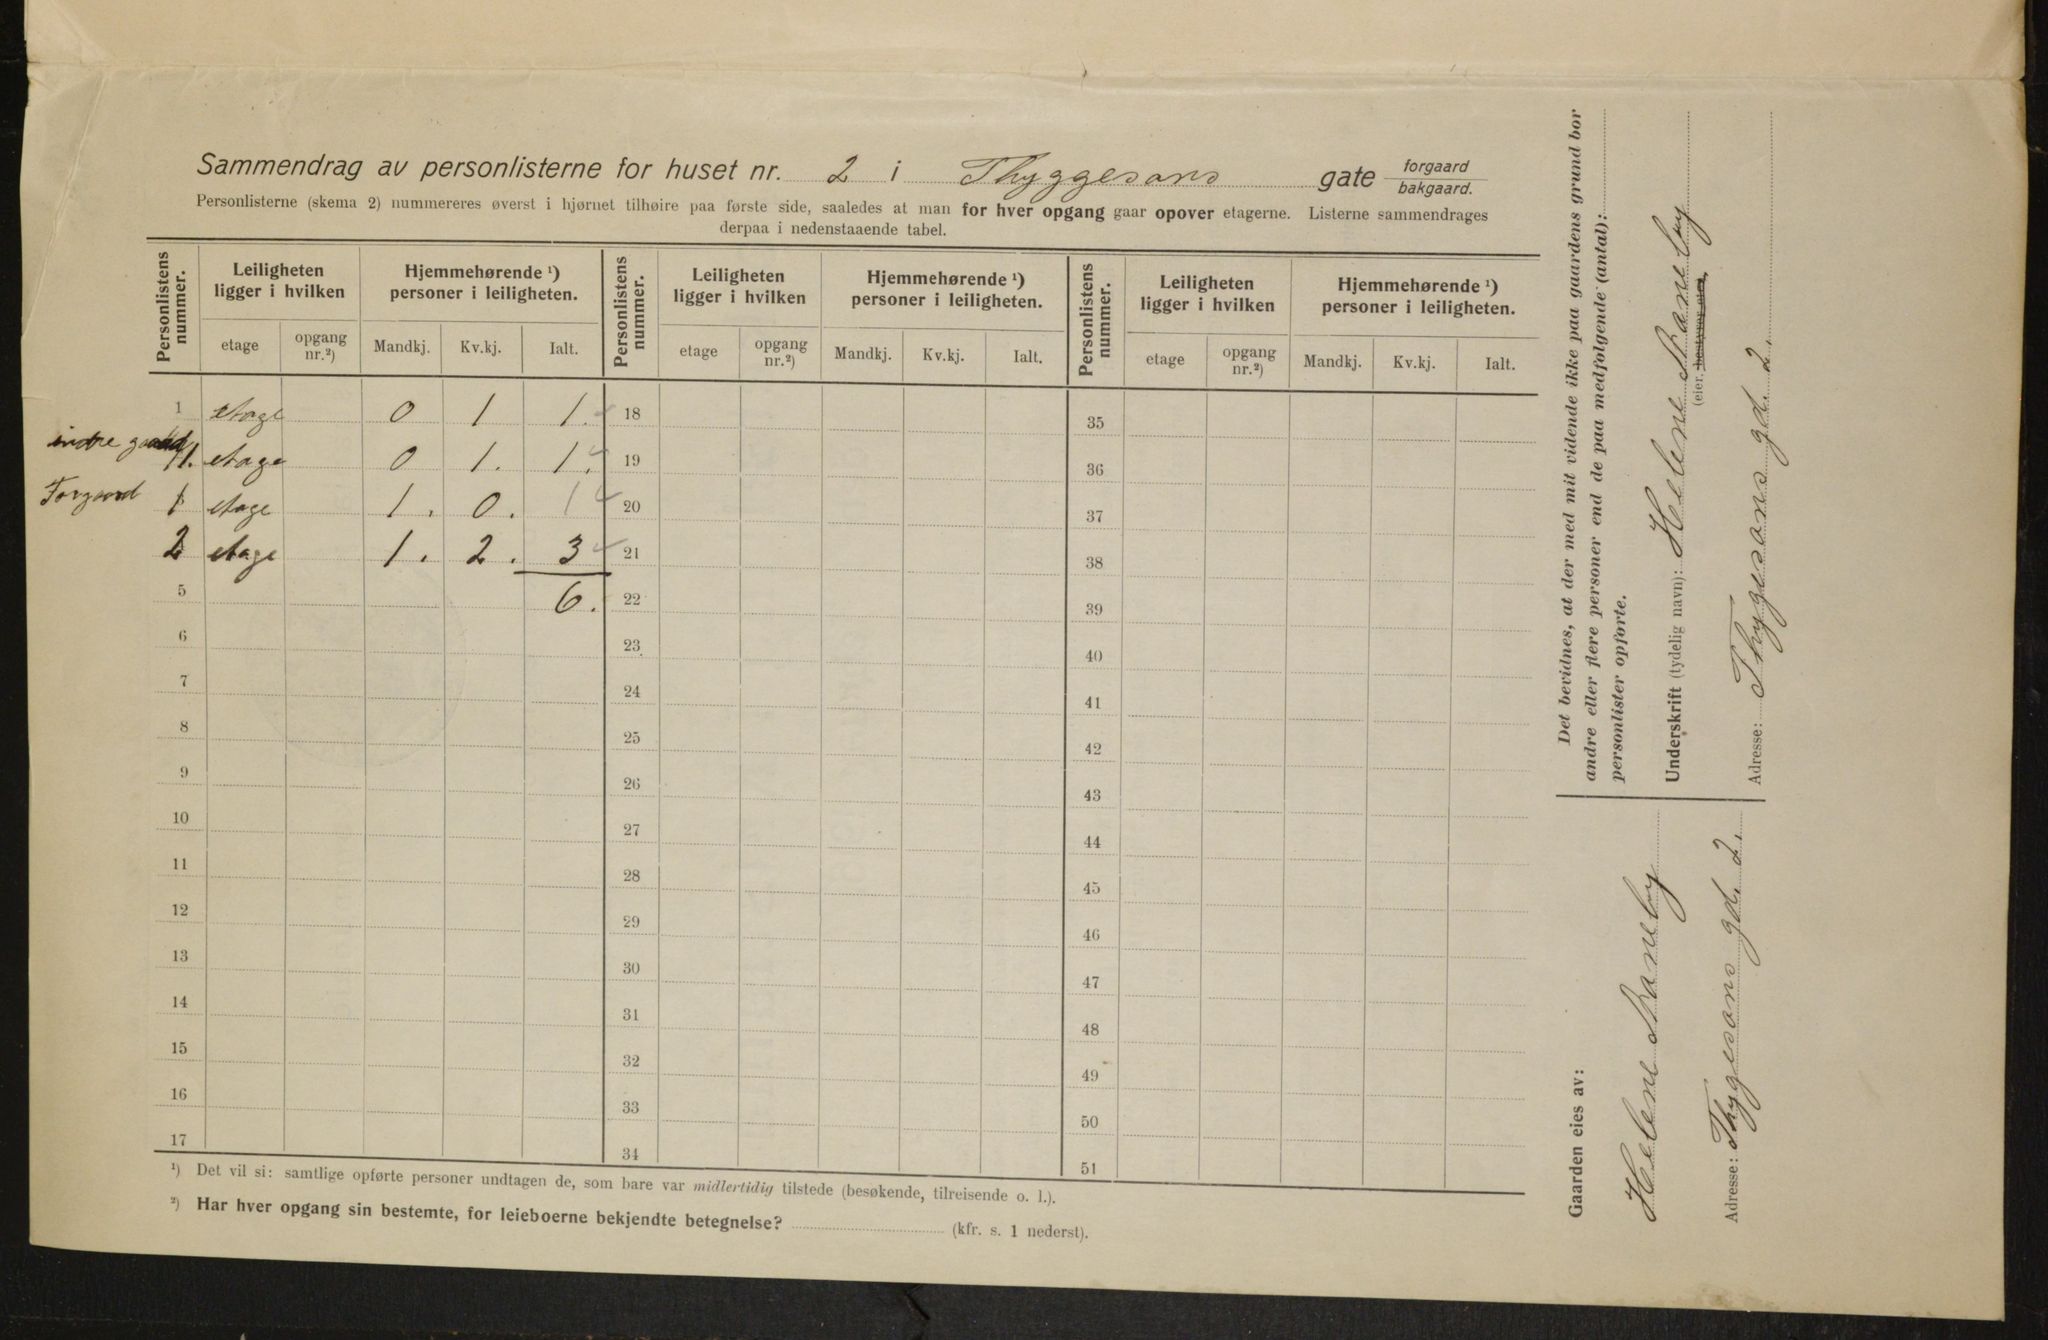 Sammendrag av personlisterne for huset nr. 2 i Thyggesons gate forgaard bakgaard.
Personlisterne (skema 2) nummereres øverst i hjørnet tilhøire paa første side, saaledes at man for hver opgang gaar opover etagerne. Listerne sammendrages
derpaa i nedenstaaende tabel.
Personlistens nummer. Leiligheten ligger i hvilken Hjemmehørende ¹) personer i leiligheten. Personlistens nummer. Leiligheten ligger i hvilken Hjemmehørende ¹) personer i leiligheten. Personlistens nummer. Leiligheten ligger i hvilken Hjemmehørende ¹) personer i leiligheten.
etage opgang nr.²) Mandkj. Kv.kj. Ialt. etage opgang nr.²) Mandkj. Kv.kj. Ialt. etage opgang nr.²) Mandkj. Kv.kj. Ialt.
1 etage 0 1 1. 18 35
indre gaard 11. etage 0 1. 1. 19 36
Forgaard 1 etage 1. 0. 1 20 37
2 etage 1. 2. 3 21 38
5 6. 22 39
6 23 40
7 24 41
8 25 42
9 26 43
10 27 44
11 28 45
12 29 46
13 30 47
14 31 48
15 32 49
16 33 50
17 34 51
¹) Det vil si: samtlige opførte personer undtagen de, som bare var midlertidig tilstede (besøkende, tilreisende o. l.).
²) Har hver opgang sin bestemte, for leieboerne bekjendte betegnelse? (kfr. s. 1 nederst).
Det bevidnes, at der med mit vidende ikke paa gaardens grund bor
andre eller flere personer end de paa medfølgende (antal):
personlister opførte.
Underskrift (tydelig navn): Helene Raneby
(eier.
Adresse: Thygesons gd. 2.
Gaarden eies av:
Helene Raneby
Adresse: Thygesons gd. 2.